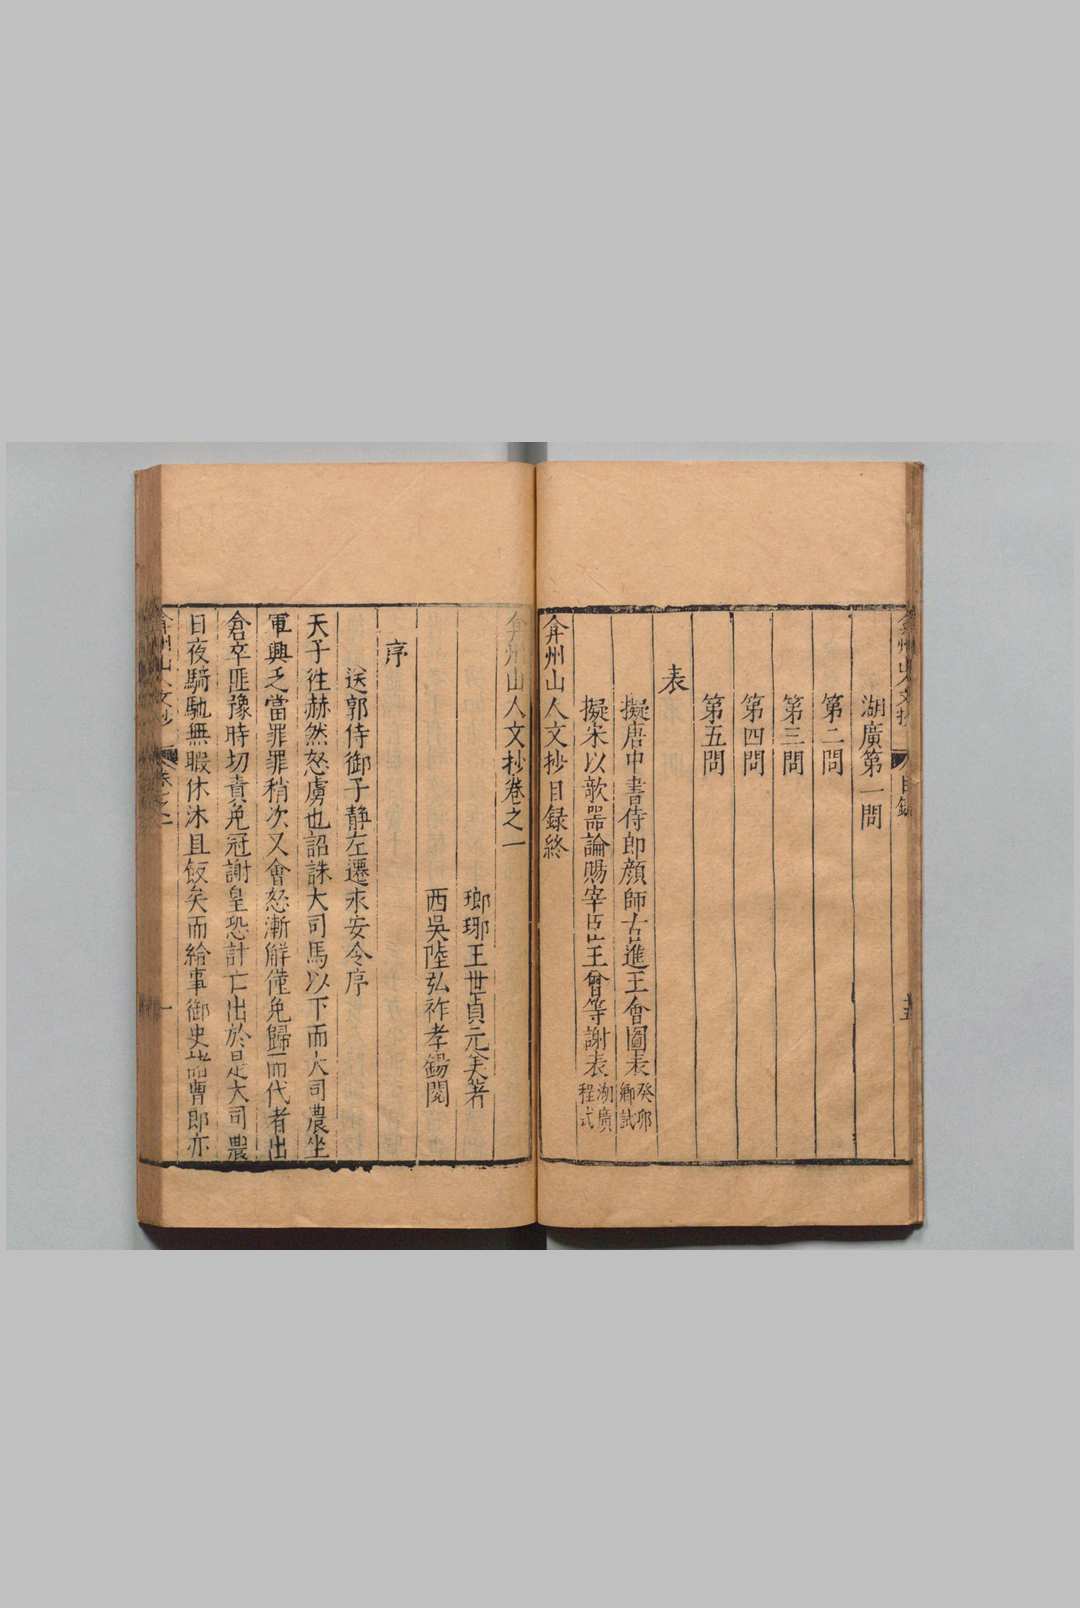 弇州山人文抄
目録
十五
湖廣第一問
第二問
第三問
第四問
第五問
表
擬唐中書侍郎顔師古進王會圖表癸卯鄉試
擬宋以欹器論賜宰臣王曾等謝表湖廣程式
弇州山人文抄目録終
弇州山人文抄卷之一
瑯琊王世貞元美著
西吳陸弘祚孝錫閱
序
送郭侍御子靜左遷求安令序
天子徃赫然怒虜也詔誅大司馬以下而大司農坐
軍興乏當罪罪稍次又會怒漸解僅免歸而代者出
倉卒匪豫時切責免冠謝皇恐計亡出於是大司農
日夜騎馳無暇休沐且飯矣而給事御史諸曹郎亦
弇州山人文抄
卷之一
一